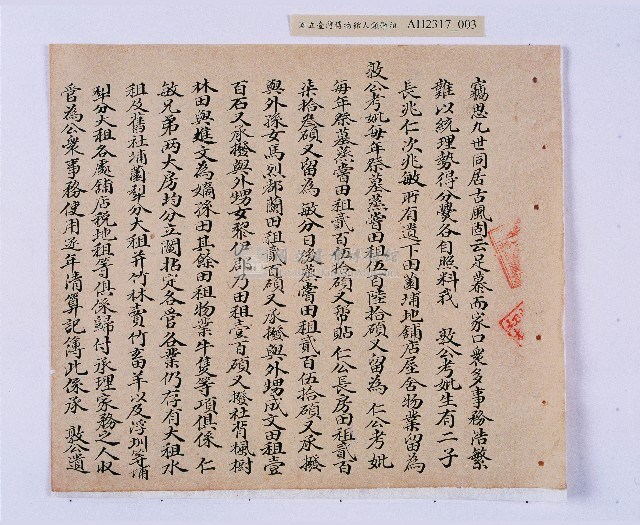 國立臺灣博物館人類學組 AH2317_003
竊思九世同居古風固云足慕而家口衆多事務浩繁
難以統理勢得分爨各自照料我 敦公考妣生有二子
長兆仁次兆敏所有遺下田園埔地舖店屋舍物業留為
敦公考妣每年祭墓蒸嘗田租伍百陸拾碩又留為 仁公考妣
每年祭墓蒸嘗田租貳百伍拾碩又幫貼 仁公長房田租貳百
柒拾叁碩又留為 敏分日後蒸嘗田租貳百伍拾碩又承撥
與外孫女馬烈都蘭田租貳百碩又承撥與外甥成文田租壹
百石又承撥與外甥女黎仍郡乃田租壹百碩又撥社背楓樹
林田與進文為嫡孫田其餘田租物業牛隻等項俱係 仁
敏兄弟兩大房均分立鬮拈定各管各業仍存有大租水
租及舊社埔園犁分大租并竹林賣竹畜年以及浮圳等埔
犁分大租各處舖店稅地租等俱係歸付承理家務之人收
管為公衆事務使用逐年清算記簿此係承 敦公遺